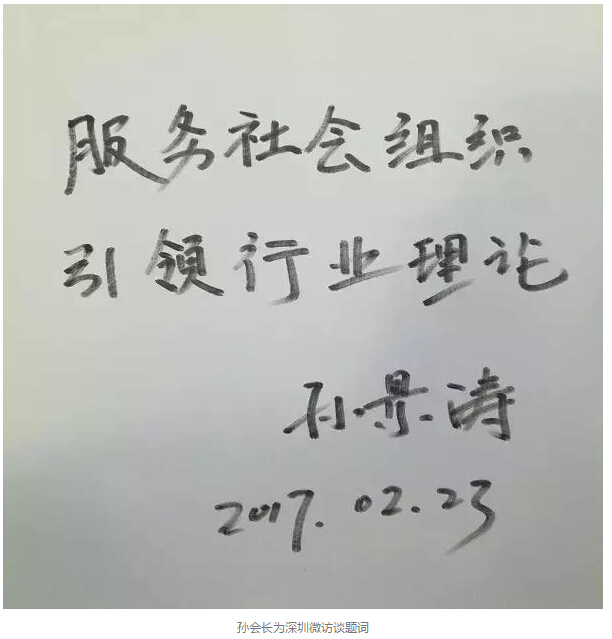 服务社会组织
引领行业理论
孙景涛
2017.02.23
孙会长为深圳微访谈题词